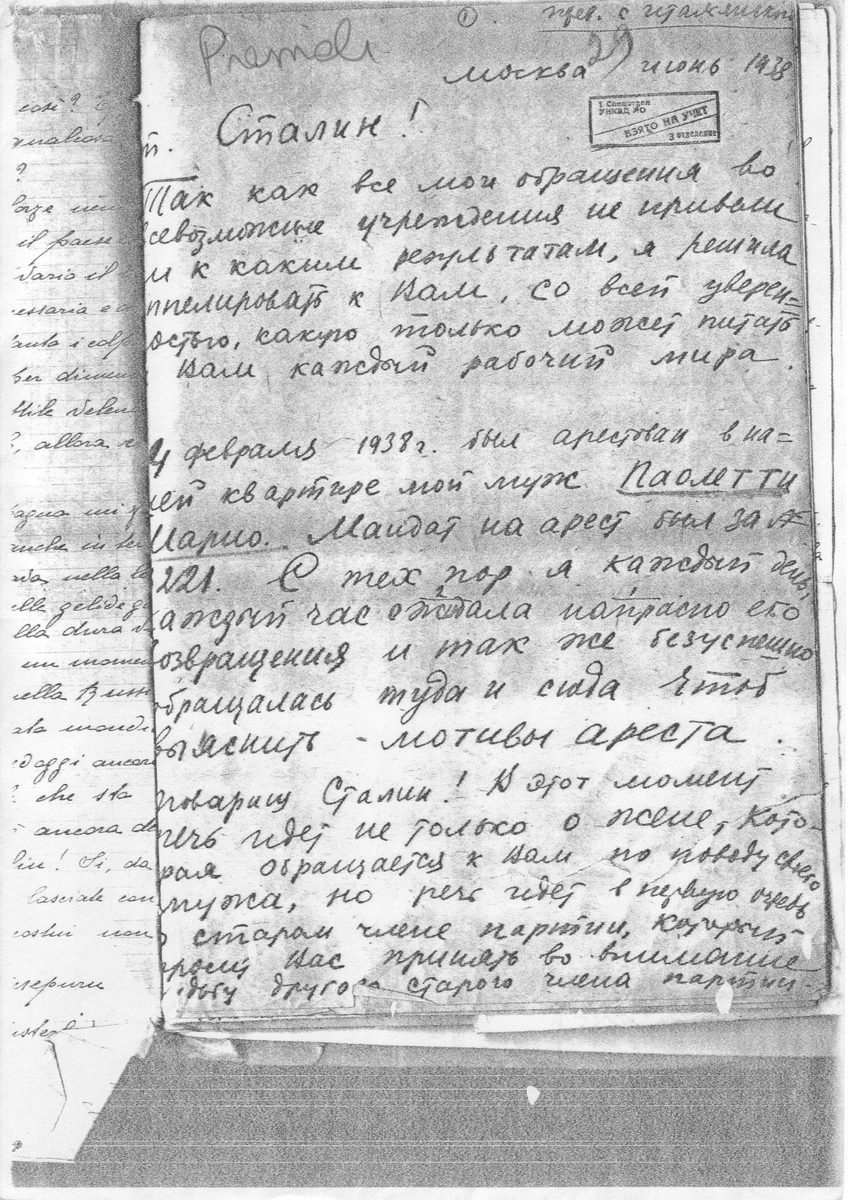 ①. пер. с итальянского
Premoli
Москва 29 июнь 1938
1 Спецотдел
УНКВД МО
ВЗЯТО НА УЧЕТ
3 отделение
т. Сталин!
Так как все мои обращения во
севозможные учреждения не привели
и к каким результатам, я решила
ппелировать к Вам, со всей уверен=
остью, какую только может питать
Вам каждый рабочий мира.
4 февраля 1938 г. был арестован в на=
ей квартире мой муж Паолетти
Марио. Мандат на арест был за №
221. С тех пор я каждый день,
аждый час ождала напрасно его
озвращения и так же безуспешно
обращалась туда и сюда чтоб
выяснить - мотивы ареста.
товарищ Сталин! В этот момент
речь идет не только о жене, кото-
рая обращается к Вам по поводу своего
мужа, но речь идет в первую очередь
о старом члене партии, который
просит Вас принять во внимание
удьбу другого старого члена партии-
così?
?
il paese
essaria e
anto i colp
per
, allora
agna mi
anche in
nella
elle gelide
lla dura
un momen
nella Russi
oggi ancora
che sta
ancora
lin! Si, da
lasciate con